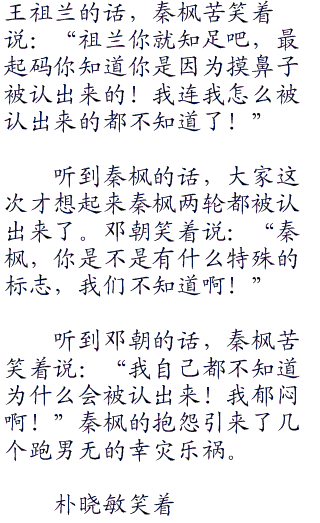 王祖兰的话，秦枫苦笑着
说：“祖兰你就知足吧，最
起码你知道你是因为摸鼻子
被认出来的！我连我怎么被
认出来的都不知道了！”
听到秦枫的话，大家这
次才想起来秦枫两轮都被认
出来了。邓朝笑着说：“秦
枫，你是不是有什么特殊的
标志，我们不知道啊！”
听到邓朝的话，秦枫苦
笑着说：“我自己都不知道
为什么会被认出来！我郁闷
啊！”秦枫的抱怨引来了几
个跑男无的幸灾乐祸。
朴晓敏笑着